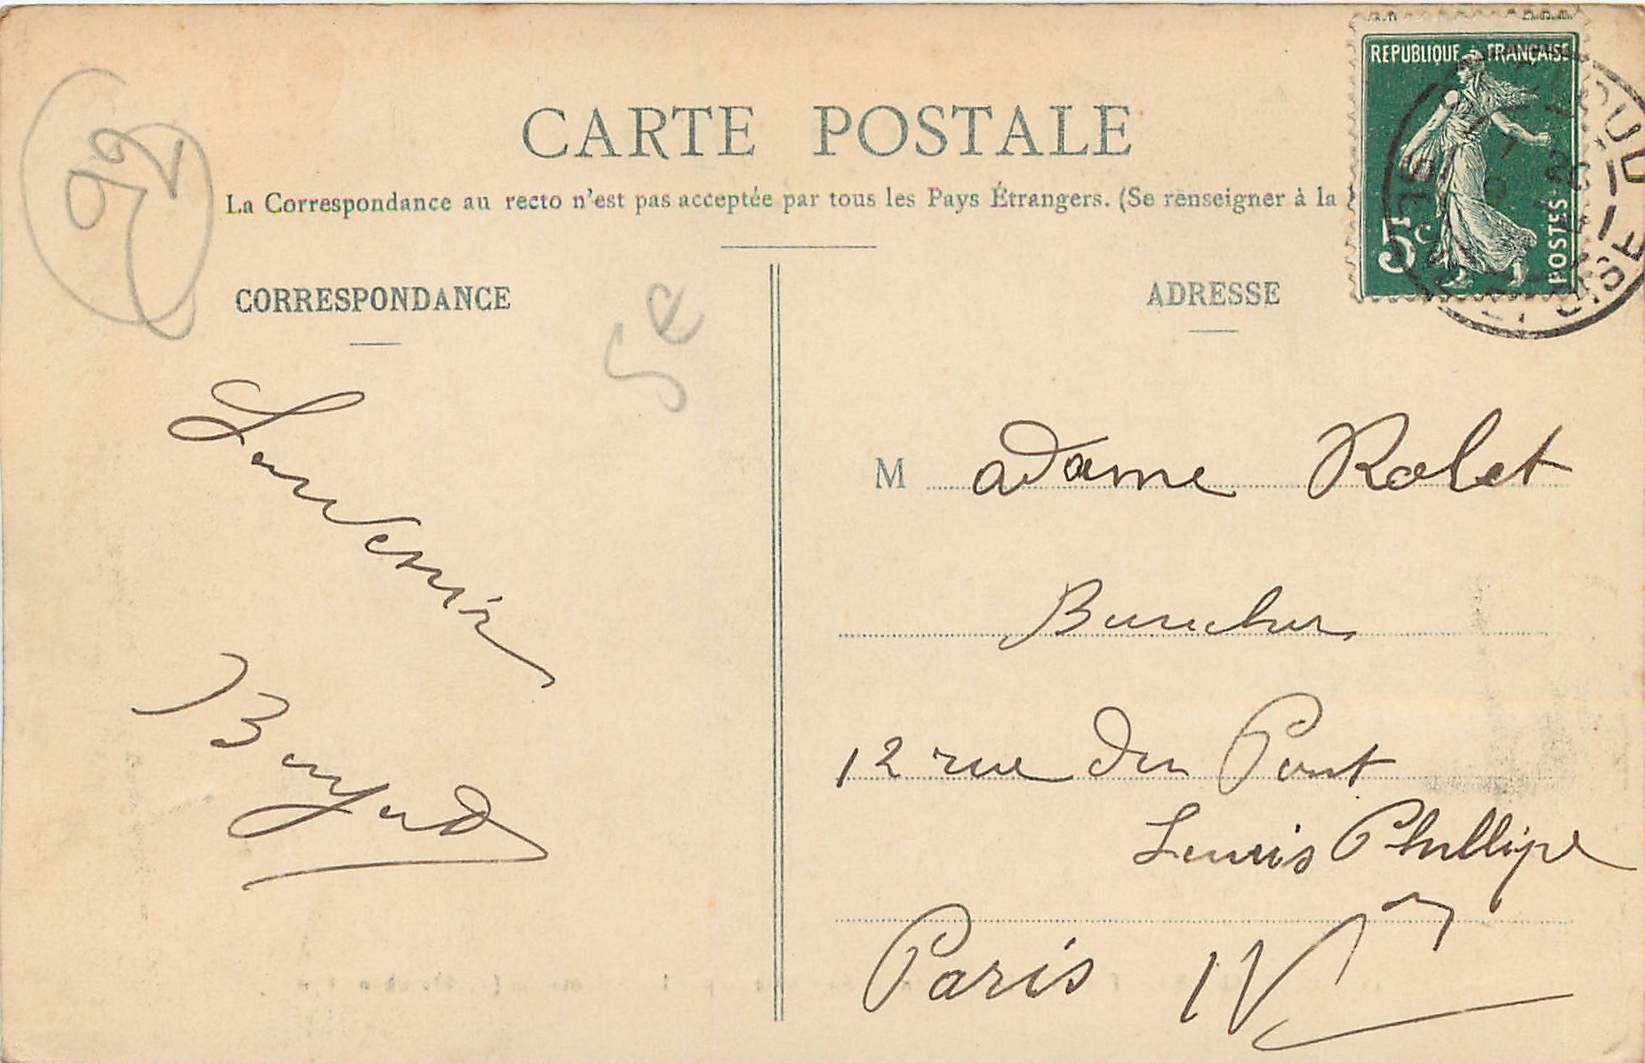 REPUBLIQUE FRANÇAISE
5c
POSTES
CARTE POSTALE
La Correspondance au recto n'est pas acceptée par tous les Pays Étrangers. (Se renseigner à la
92
5e
CORRESPONDANCE
Souvenir
ADRESSE
Madame Rolet
12 rue du Pont
Louis Phillipe
Paris IV